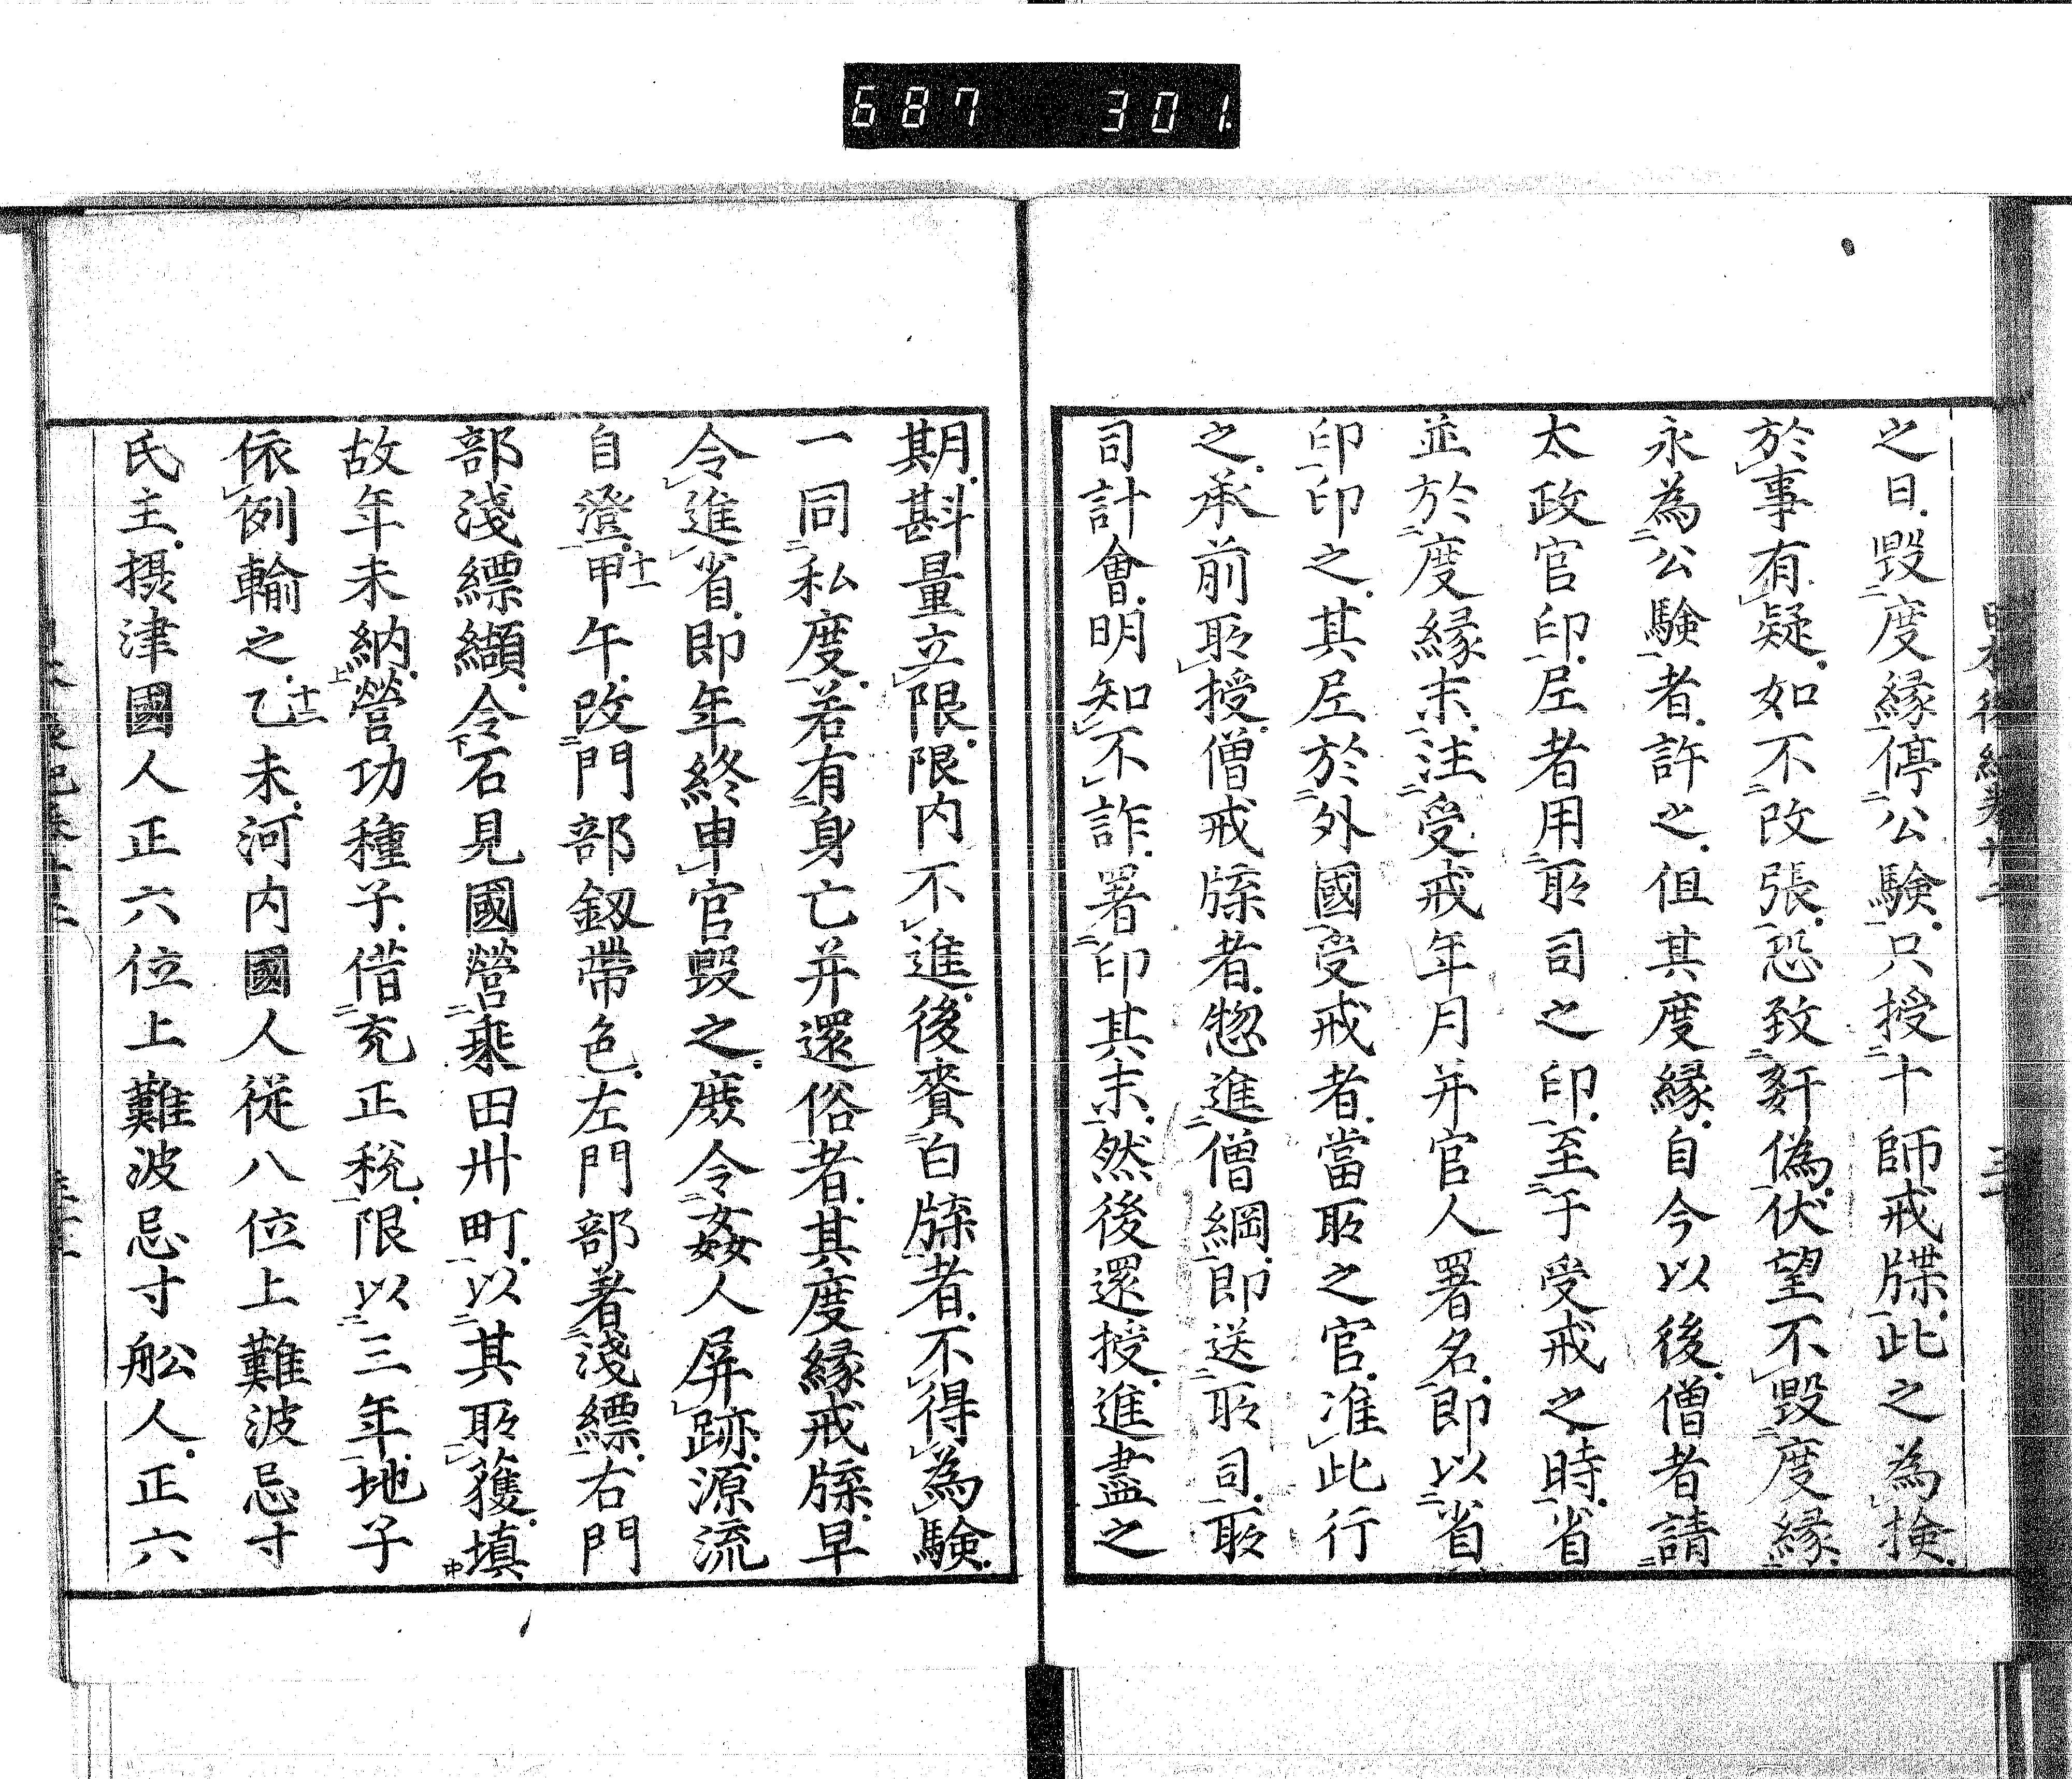 687 301
之日毀度縁停公験只授十師戒牒此之為撿
於事有疑如不改張恐致姧偽伏望不毀度縁
永為公驗者許之但其度縁自今以後僧者請
太政官印尼者用所司之印至于受戒之時省
並於度縁末注受戒年月并官人署名即以省
印印之其尼於外國受戒者當所之官准此行
之承前所授僧戒牒者惣進僧綱即送所司所
司計會明知不詐署印其末然後還授進盡之
期斟量立限限内不進後賷白牒者不得為驗
一同私度若有身亡并還俗者其度縁戒牒早
令進省即年終申官毀之庶令姦人屏跡源流
自澄甲午改門部釼帶色左門部著淺縹右門
十一
部淺縹纈令石見國營乘田卅町以其所獲填
故年未納營功種子借充正税限以三年地子
依例輸之乙未河内國人從八位上難波忌寸
十二
氏主攝津國人正六位上難波忌寸舩人正六